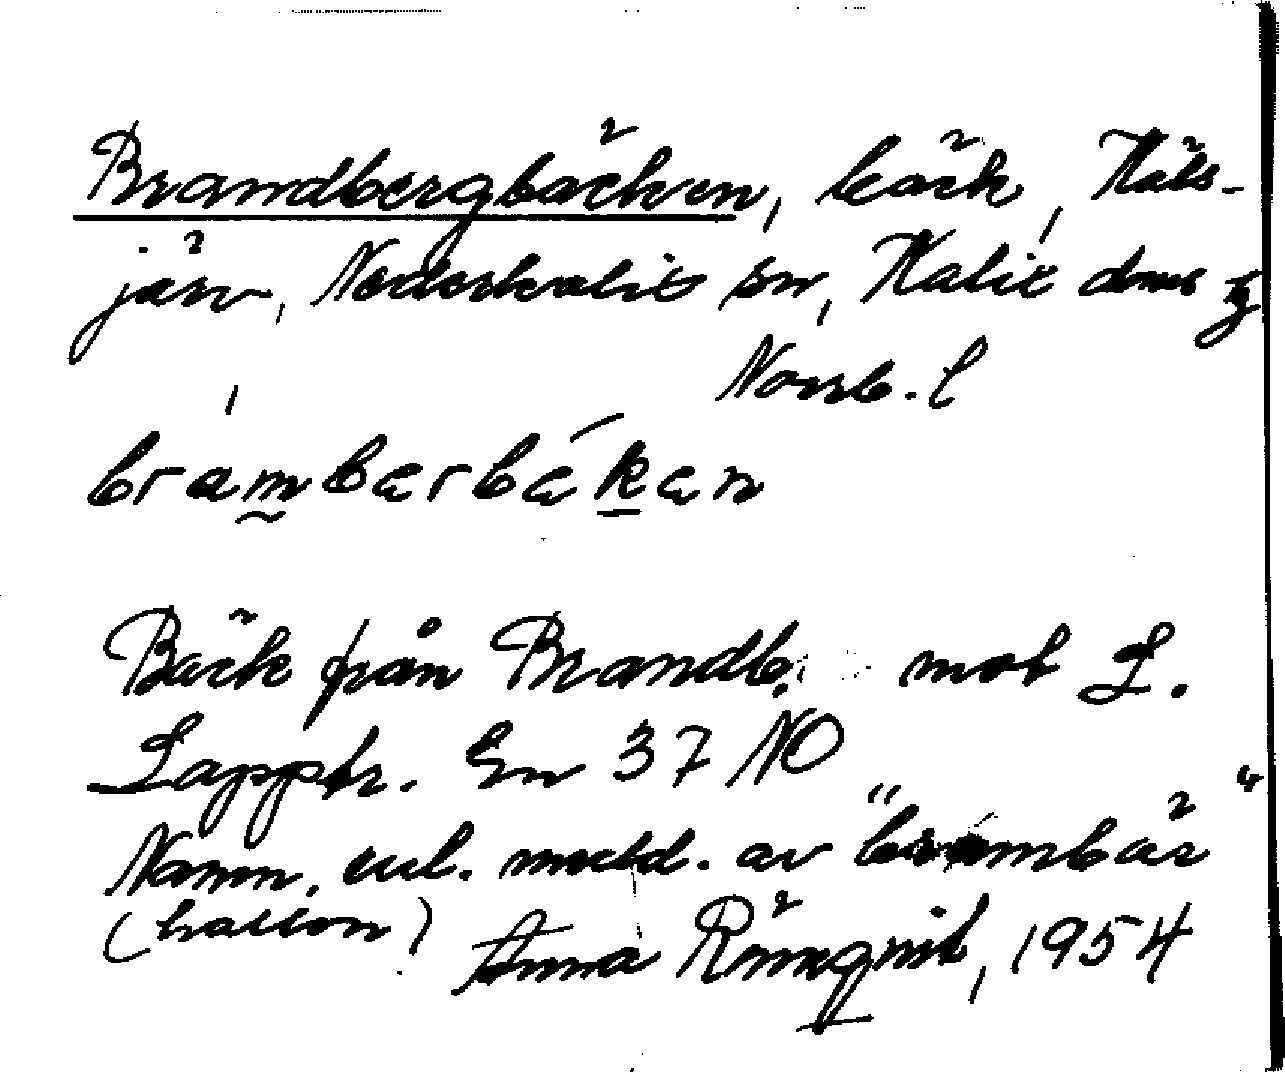 Brandbergbäcken, bäck, Räts-
järv, Nederkalix sn, Kalix dmr
Norrb. l
brambærbækæn
Bäck från Brandb. mot L.
Lapptr. En 37 NO
Namn. enl. medd. av "brombär"
(hallon) Anna Rönnqvist, 1954